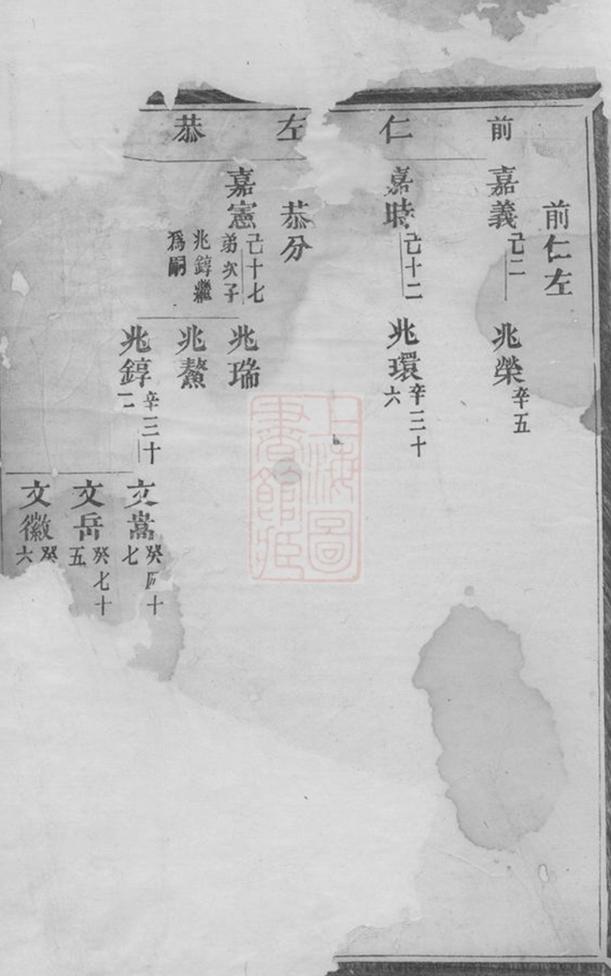 前 仁 左 恭
前仁左
嘉義 己二
兆榮 辛五
嘉時 己十二
兆環 辛三十六
恭分
嘉憲 己十七 弟次子兆錞繼爲嗣
兆瑞
兆鰲
兆錞 辛三十二
文嵩 癸四十七
文岳 癸七十五
文徽 癸 六
上海圖書館藏